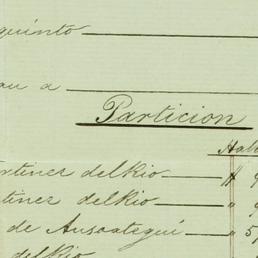 quinto
a
Particion
Hab
rtinez delRio # 9
tinez delRio " 9
de Ansoategui " 5
delRio